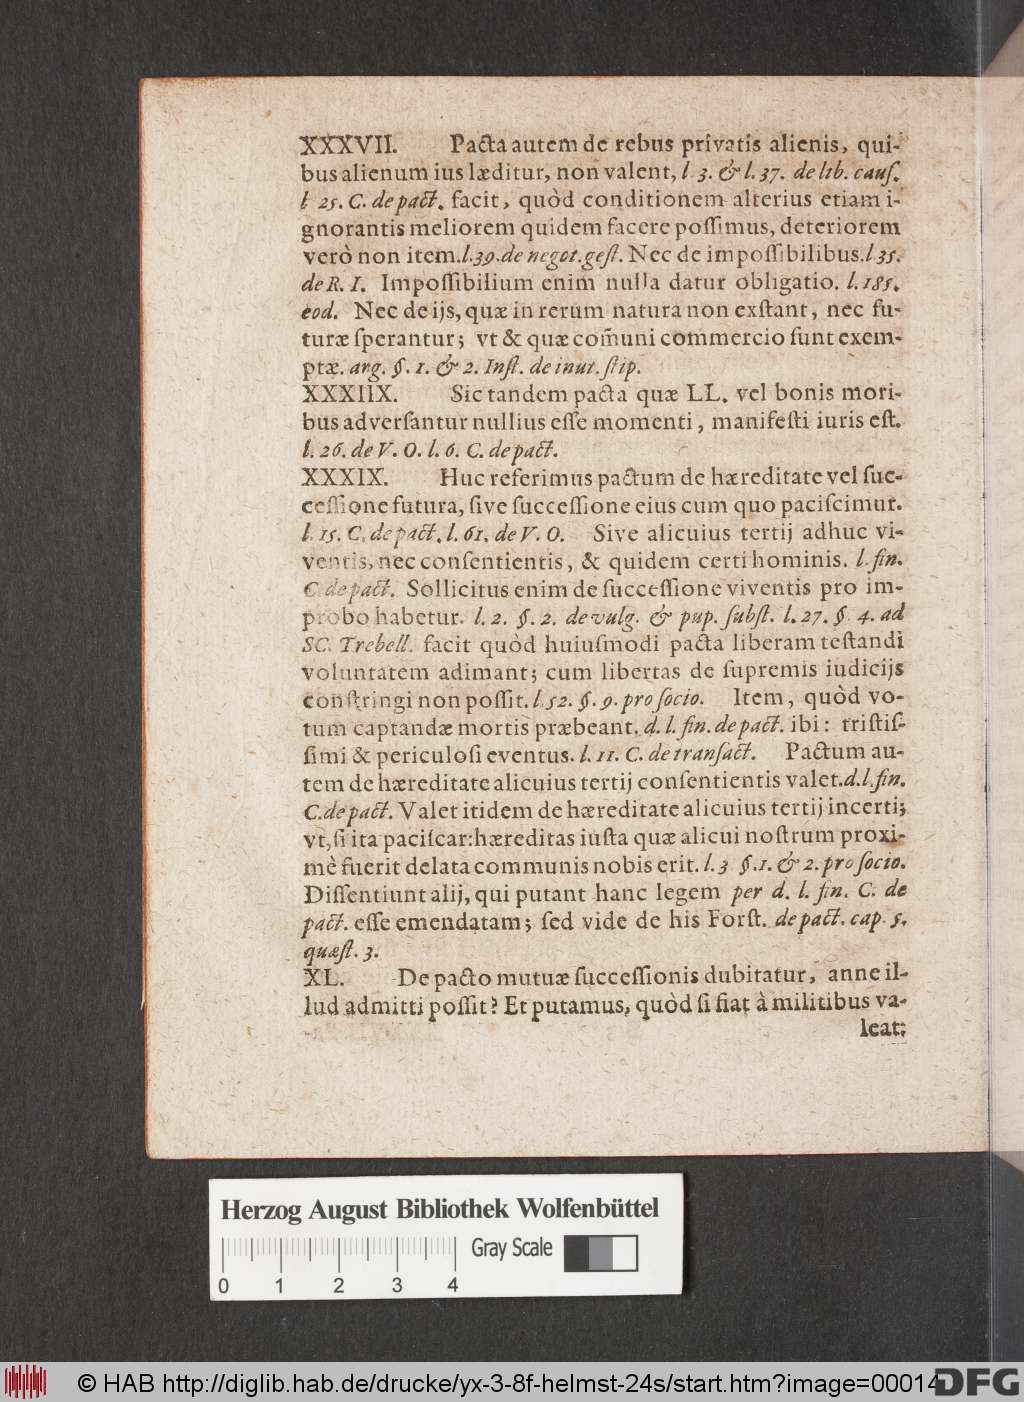 XXXVII. Pacta autem de rebus privatis alienis, qui-
bus alienum ius læditur, non valent, l 3. & l. 37. de lib. cauſ.
l 25. C. de pact. facit, quòd conditionem alterius etiam i-
gnorantis meliorem quidem facere poſſimus, deteriorem
verò non item. l. 39. de negot. geſt. Nec de impoſſibilibus. l 35.
de R. I. Impoſſibilium enim nulla datur obligatio. l. 185.
eod. Nec de ijs, quæ in rerum natura non exſtant, nec fu-
turæ ſperantur; vt & quæ com̃uni commercio ſunt exem-
ptæ. arg. §. 1. & 2. Inſt. de inut. ſtip.
XXXIIX. Sic tandem pacta quæ LL. vel bonis mori-
bus adverſantur nullius eſſe momenti, manifeſti iuris eſt.
l. 26. de V. O. l. 6. C. de pact.
XXXIX. Huc referimus pactum de hæreditate vel ſuc-
ceſſione futura, ſive ſucceſſione eius cum quo paciſcimur.
l. 15. C. de pact. l. 61. de V. O. Sive alicuius tertij adhuc vi-
ventis, nec conſentientis, & quidem certi hominis. l. fin.
C. de pact. Sollicitus enim de ſucceſſione viventis pro im-
probo habetur. l. 2. §. 2. de vulg. & pup. ſubſt. l. 27. §. 4. ad
SC. Trebell. facit quòd huiuſmodi pacta liberam teſtandi
voluntatem adimant; cum libertas de ſupremis iudicijs
conſtringi non poſſit. l. 52. §. 9. pro ſocio. Item, quòd vo-
tum captandæ mortis præbeant. d. l. fin. de pact. ibi: triſtiſ-
ſimi & periculoſi eventus. l. 11. C. de tranſact. Pactum au-
tem de hæreditate alicuius tertij conſentientis valet. d. l. fin.
C. de pact. Valet itidem de hæreditate alicuius tertij incerti;
vt, ſi ita paciſcar: hæreditas iuſta quæ alicui noſtrum proxi-
mè fuerit delata communis nobis erit. l. 3 §. 1. & 2. pro ſocio.
Diſſentiunt alij, qui putant hanc legem per d. l. fin. C. de
pact. eſſe emendatam; ſed vide de his Forſt. de pact. cap. 5.
quæſt. 3.
XL. De pacto mutuæ ſucceſſionis dubitatur, anne il-
lud admitti poſſit? Et putamus, quòd ſi fiat à militibus va-
leat:
Herzog August Bibliothek Wolfenbüttel
Gray Scale
0 1 2 3 4
© HAB http://diglib.hab.de/drucke/yx-3-8f-helmst-24s/start.htm?image=00014
DFG